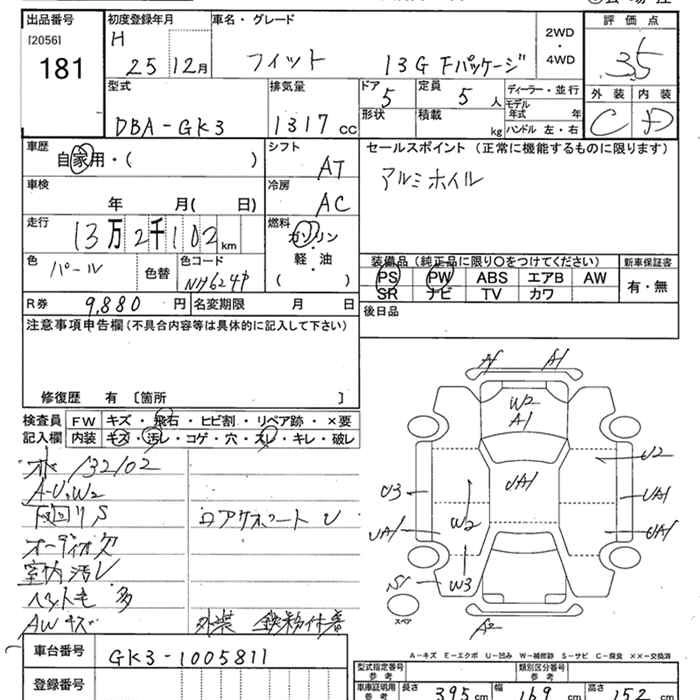 出品番号
[2056]
181
初度登録年月
H 25 12月
車名・グレード
フィット 13G Fパッケージ
2WD
・
4WD
評価点
3.5
外装 内装
C D
型式
DBA-GK3
排気量
1317 cc
ドア 5
定員 5 人
形状
積載 kg
ディーラー・並行
モデル年式 年
ハンドル 左・右
車歴
自家用・( )
シフト
AT
セールスポイント (正常に機能するものに限ります)
アルミホイル
車検
年 月( 日)
冷房
AC
走行
13万2千102 km
燃料
ガソリン
・
軽・油
( )
色 パール
色替
色コード
NH624P
装備品 (純正品に限り〇をつけてください)
PS PW ABS エアB AW
SR ナビ TV カワ
新車保証書
有・無
R券 9,880 円
名変期限 月 日
後日品
注意事項申告欄 (不具合内容等は具体的に記入して下さい)
修復歴 有 [箇所 ]
検査員 FW キズ・飛石・ヒビ割・リペア跡・×要
記入欄 内装 キズ・汚レ・コゲ・穴・スレ・キレ・破レ
132102
A-U,W2
下回りS
エアサポート U
オーディオ欠
室内汚レ
ペット毛 多
AWキズ
外装 鉄粉付着
A1
W2
A1
U2
UA1
U3
W2
UA1
UA1
UA1
S1
W3
A2
スペア
A-キズ E-エクボ U-凹み W-補修跡 S-サビ C-腐食 ××-交換済
車台番号 GK3-1005811
登録番号
型式指定番号
参考
類別区分番号
参考
車庫証明用
参考
長さ 395 cm
幅 169 cm
高さ 152 cm